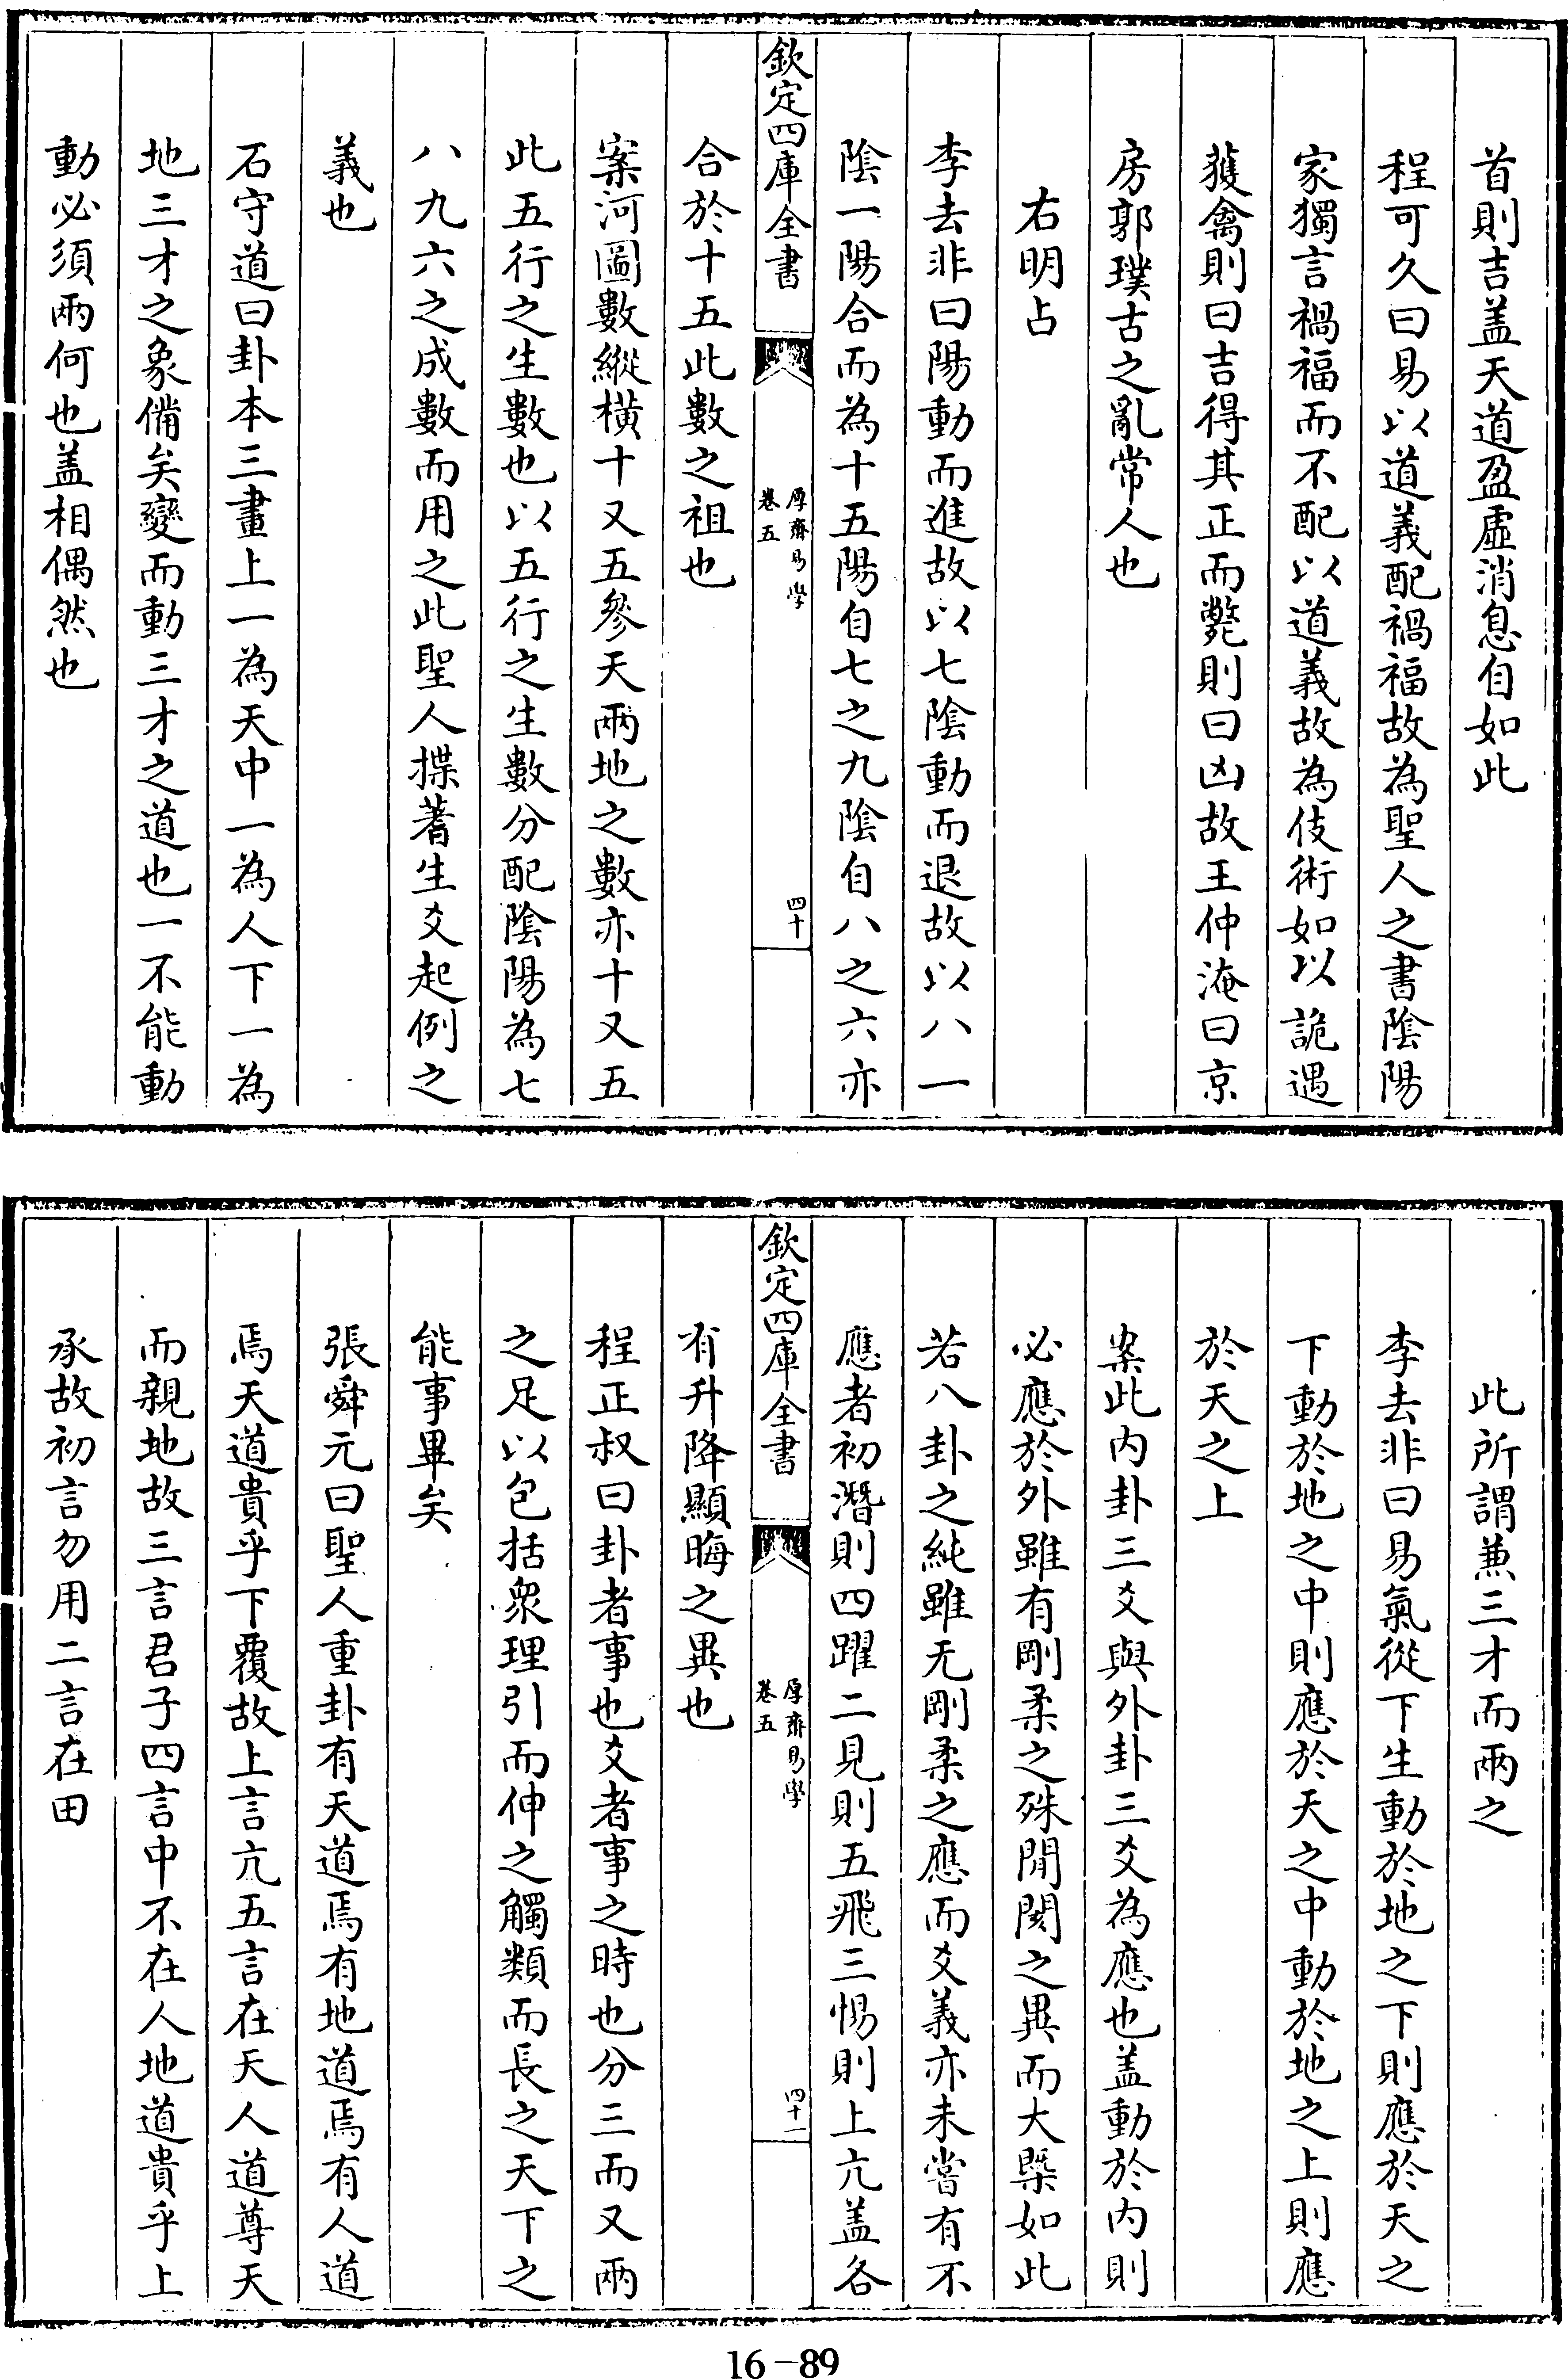 首則吉盖天道盈虛消息自如此
程可久曰易以道義配禍福故為聖人之書陰陽
家獨言禍福而不配以道義故為伎術如以詭遇
獲禽則曰吉得其正而斃則曰凶故王仲淹曰京
房郭璞古之亂常人也
右明占
李去非曰陽動而進故以七陰動而退故以八一
陰一陽合而為十五陽自七之九陰自八之六亦
欽定四庫全書
厚齋易學
卷五
四十
合於十五此數之祖也
案河圖數縱橫十又五參天兩地之數亦十又五
此五行之生數也以五行之生數分配陰陽為七
八九六之成數而用之此聖人揲蓍生爻起例之
義也
石守道曰卦本三畫上一為天中一為人下一為
地三才之象備矣變而動三才之道也一不能動
動必須兩何也盖相偶然也
此所謂兼三才而兩之
李去非曰易氣從下生動於地之下則應於天之
下動於地之中則應於天之中動於地之上則應
於天之上
案此内卦三爻與外卦三爻為應也盖動於内則
必應於外雖有剛柔之殊閒闋之異而大槩如此
若八卦之純雖无剛柔之應而爻義亦未嘗有不
應者初潛則四躍二見則五飛三惕則上亢盖各
欽定四庫全書
厚齋易學
卷五
四十一
有升降顯晦之異也
程正叔曰卦者事也爻者事之時也分三而又兩
之足以包括衆理引而伸之觸類而長之天下之
能事畢矣
張舜元曰聖人重卦有天道焉有地道焉有人道
焉天道貴乎下覆故上言亢五言在天人道尊天
而親地故三言君子四言中不在人地道貴乎上
承故初言勿用二言在田
16-89